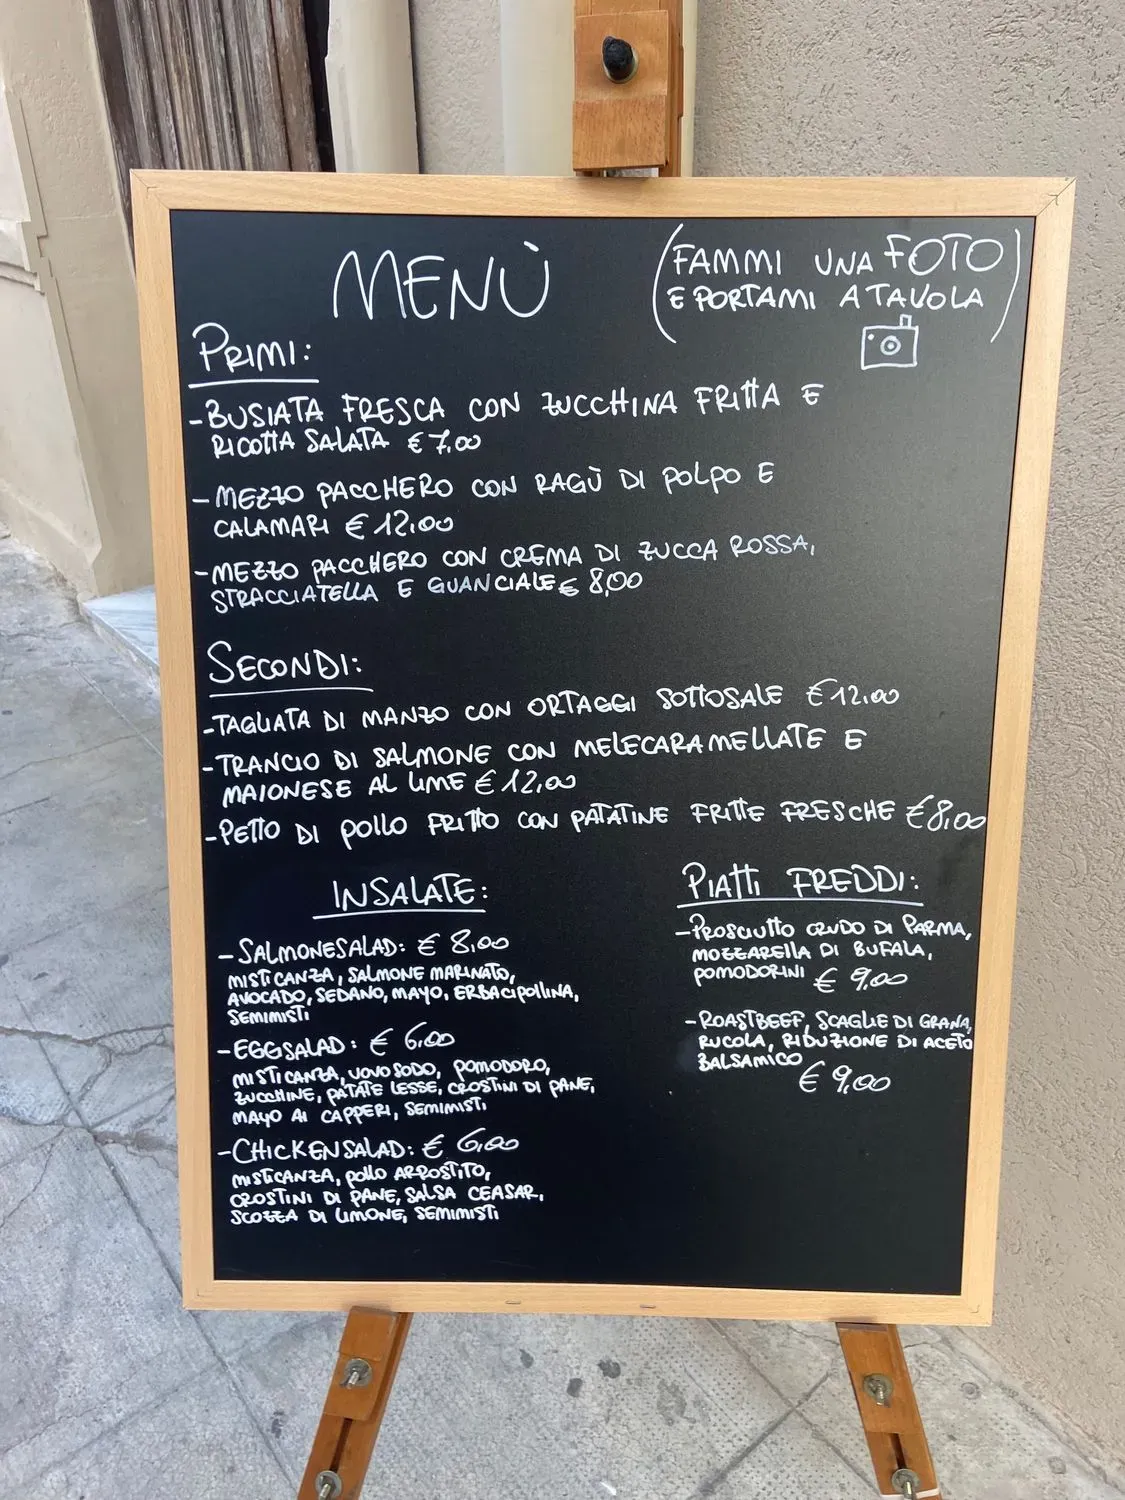 MENÙ
(FAMMI UNA FOTO
E PORTAMI A TAVOLA)
PRIMI:
-BUSIATA FRESCA CON ZUCCHINA FRITTA E
RICOTTA SALATA €7,00
-MEZZO PACCHERO CON RAGÙ DI POLPO E
CALAMARI €12,00
-MEZZO PACCHERO CON CREMA DI ZUCCA ROSSA,
STRACCIATELLA E GUANCIALE € 8,00
SECONDI:
-TAGLIATA DI MANZO CON ORTAGGI SOTTOSALE €12,00
-TRANCIO DI SALMONE CON MELECARAMELLATE E
MAIONESE AL LIME €12,00
-PETTO DI POLLO FRITTO CON PATATINE FRITTE FRESCHE €8,00
INSALATE:
-SALMONESALAD: € 8,00
MISTICANZA, SALMONE MARINATO,
AVOCADO, SEDANO, MAYO, ERBACIPOLLINA,
SEMIMISTI
-EGGSALAD: € 6,00
MISTICANZA, UOVO SODO, POMODORO,
ZUCCHINE, PATATE LESSE, CROSTINI DI PANE,
MAYO AI CAPPERI, SEMIMISTI
-CHICKENSALAD: € 6,00
MISTICANZA, POLLO ARROSTITO,
CROSTINI DI PANE, SALSA CEASAR,
SCOZZA DI LIMONE, SEMIMISTI
PIATTI FREDDI:
-PROSCIUTTO CRUDO DI PARMA,
MOZZARELLA DI BUFALA,
POMODORINI € 9,00
-ROASTBEEF, SCAGLIE DI GRANA,
RUCOLA, RIDUZIONE DI ACETO
BALSAMICO
€ 9,00